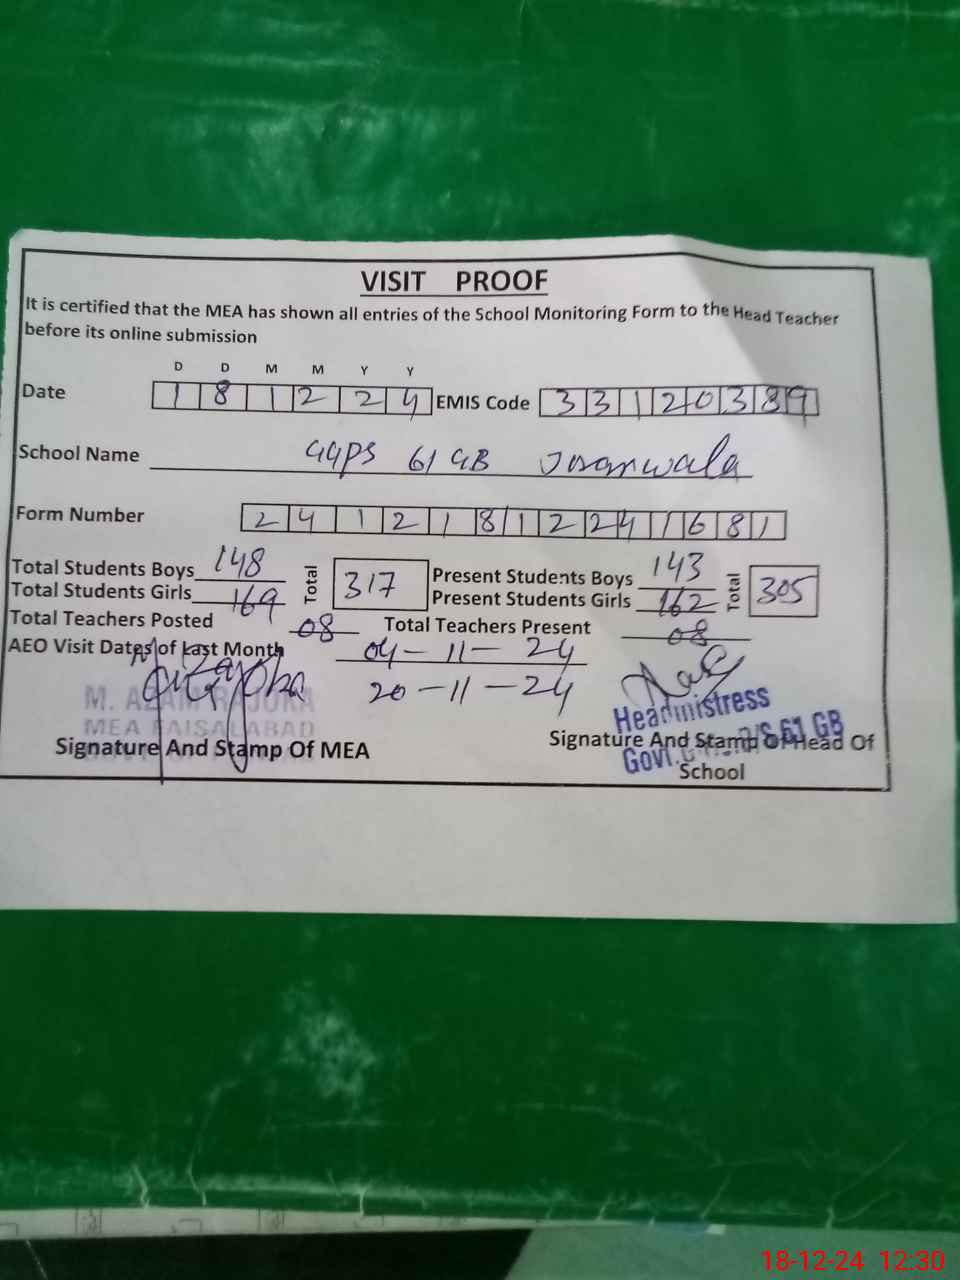 VISIT PROOF
It is certified that the MEA has shown all entries of the School Monitoring Form to the Head Teacher
before its online submission
D D M M Y Y
Date 1 8 1 2 2 4 EMIS Code 3 3 1 2 0 3 8 9
School Name GGPS 61 GB Jaranwala
Form Number 2 4 1 2 1 8 1 2 2 4 1 6 8 1
Total Students Boys 148 Total 317 Present Students Boys 143 Total 305
Total Students Girls 169 Present Students Girls 162
Total Teachers Posted 08 Total Teachers Present 08
AEO Visit Dates of Last Month 04-11-24
20-11-24
M. AZAM RAJOKA
MEA FAISALABAD
Signature And Stamp Of MEA
Headmistress
Govt. 61 GB
Signature And Stamp Of Head Of
School
18-12-24 12:30